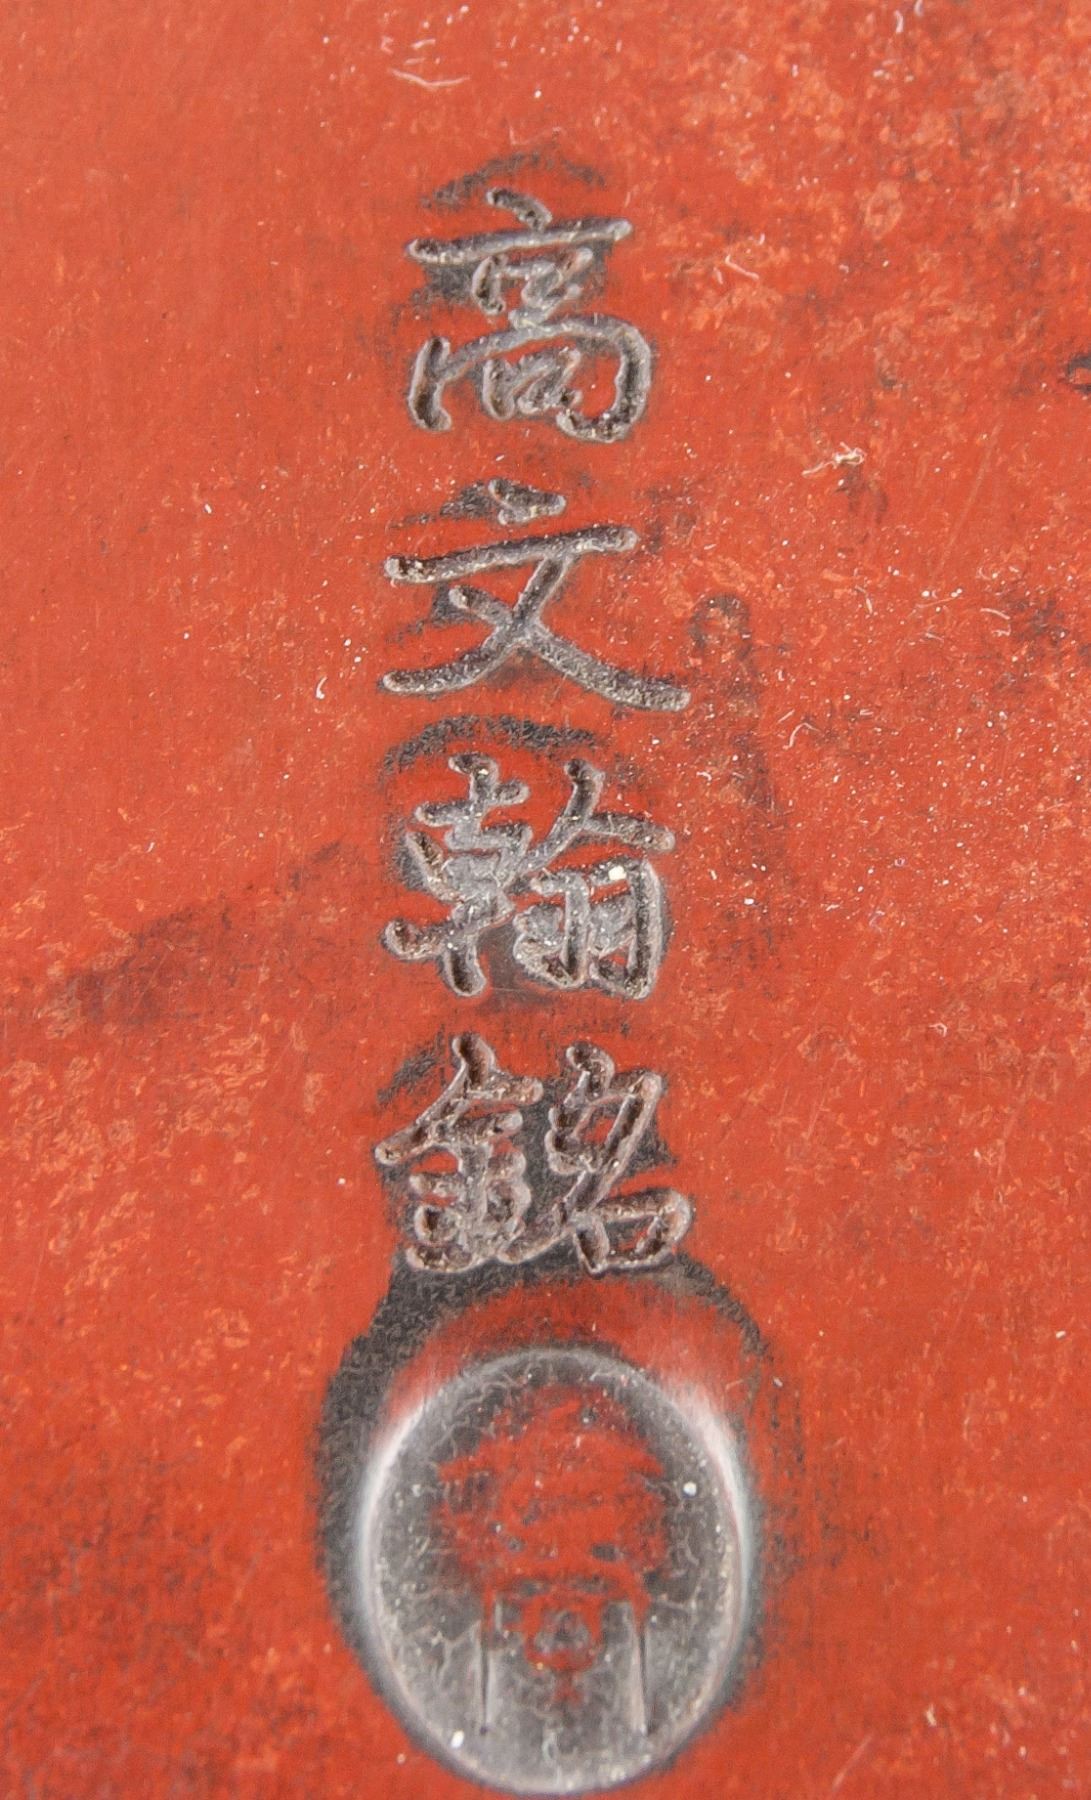 高文翰銘
高